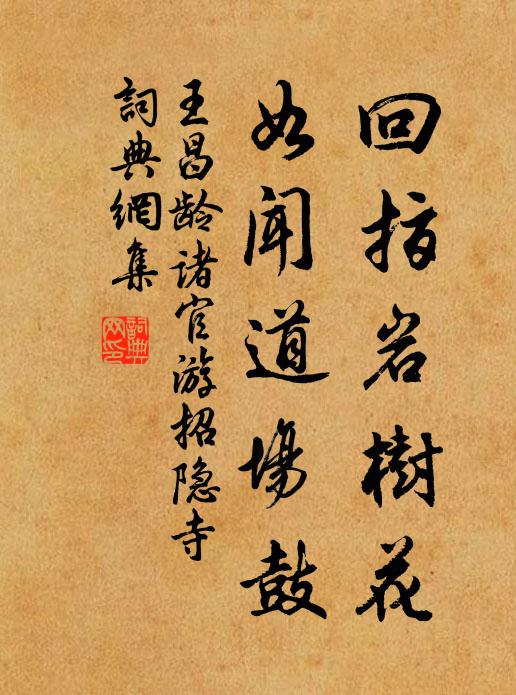 回指岩樹花
如闻道場鼓
王昌龄诸官游招隐寺
詞典網集
詞典网印